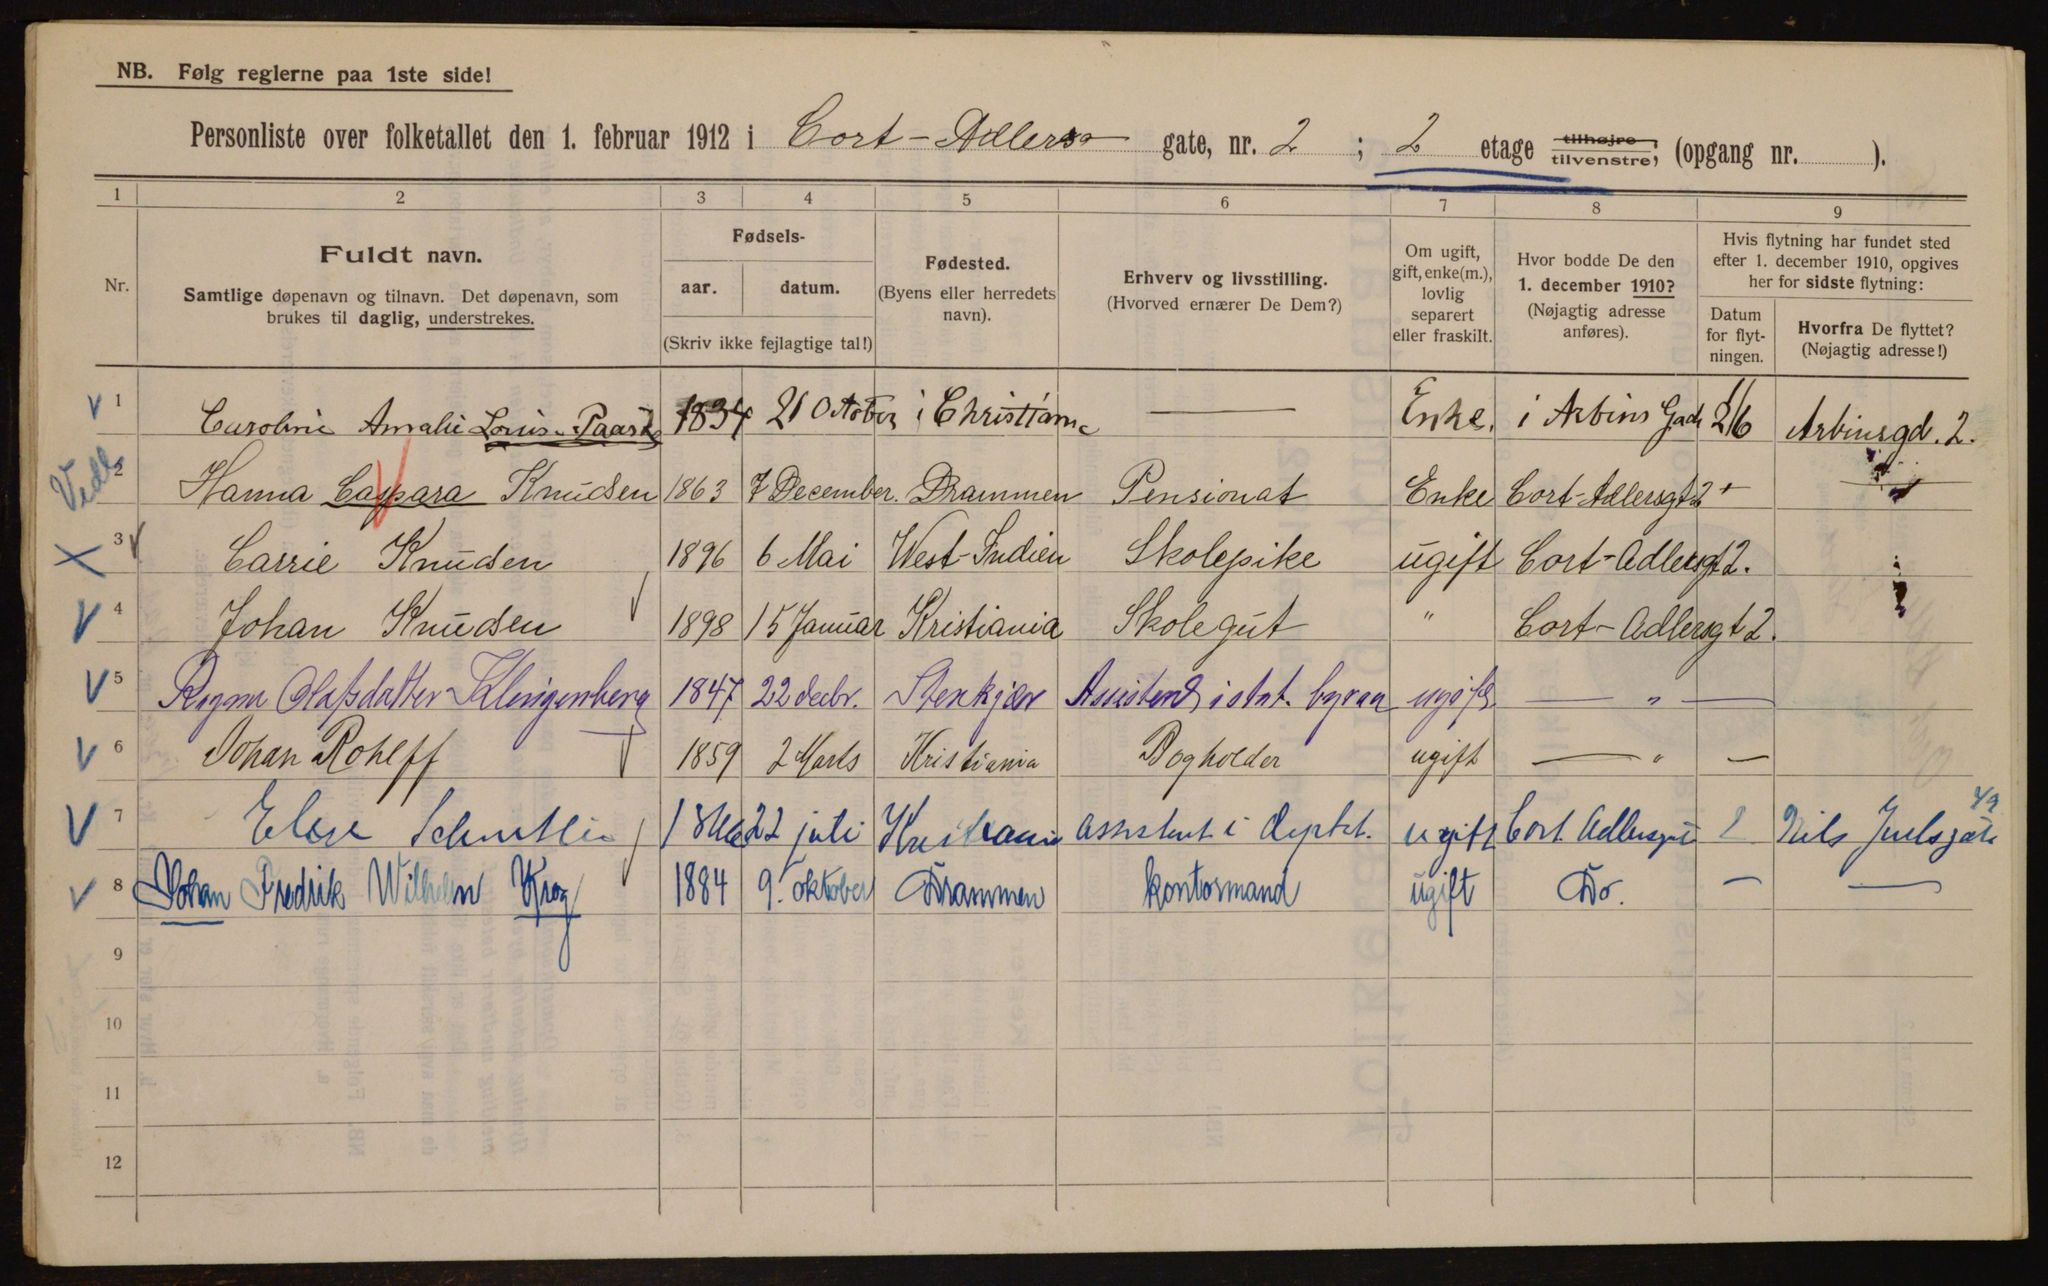 NB. Følg reglerne paa 1ste side!
Personliste over folketallet den 1. februar 1912 i Cort-Adlers gate, nr. 2 ; 2 etage tilhøjre, tilvenstre, (opgang nr. ).
1 2 3 4 5 6 7 8 9
Nr.
Fuldt navn.
Samtlige døpenavn og tilnavn. Det døpenavn, som
brukes til daglig, understrekes.
Fødsels-
aar. datum.
(Skriv ikke fejlagtige tal!)
Fødested.
(Byens eller herredets
navn).
Erhverv og livsstilling.
(Hvorved ernærer De Dem?)
Om ugift,
gift, enke(m.),
lovlig
separert
eller fraskilt.
Hvor bodde De den
1. december 1910?
(Nøjagtig adresse
anføres).
Hvis flytning har fundet sted
efter 1. december 1910, opgives
her for sidste flytning:
Datum
for flyt-
ningen.
Hvorfra De flyttet?
(Nøjagtig adresse!)
1 Caroline Amalie Louise 1834 21 October i Christiania — Enke. i Arbins Gade 2/6 Arbinsgd. 2.
2 Hanna Caspara Knudsen 1863 7 December. Drammen Pensionat Enke Cort-Adlersgt 2 —
3 Carrie Knudsen 1896 6 Mai West-Indien Skolepike ugift Cort-Adlersgt 2.
4 Johan Knudsen 1898 15 Januar Kristiania Skolegut " Cort-Adlersgt 2.
5 Olafsdatter Klingenberg 1847 22 decbr. Stenkjær Assistent i stat. byraa ugift — " —
6 Johan Rohlff 1859 2 Marts Kristiania Bogholder ugift — " —
7 Else 22 juli Kristiania assistent i ugift Cort Adlersgate Nils Juelsgate
8 Johan Fredrik Wilhelm Krog 1884 9. oktober Drammen kontormand ugift Do. — —
9
10
11
12